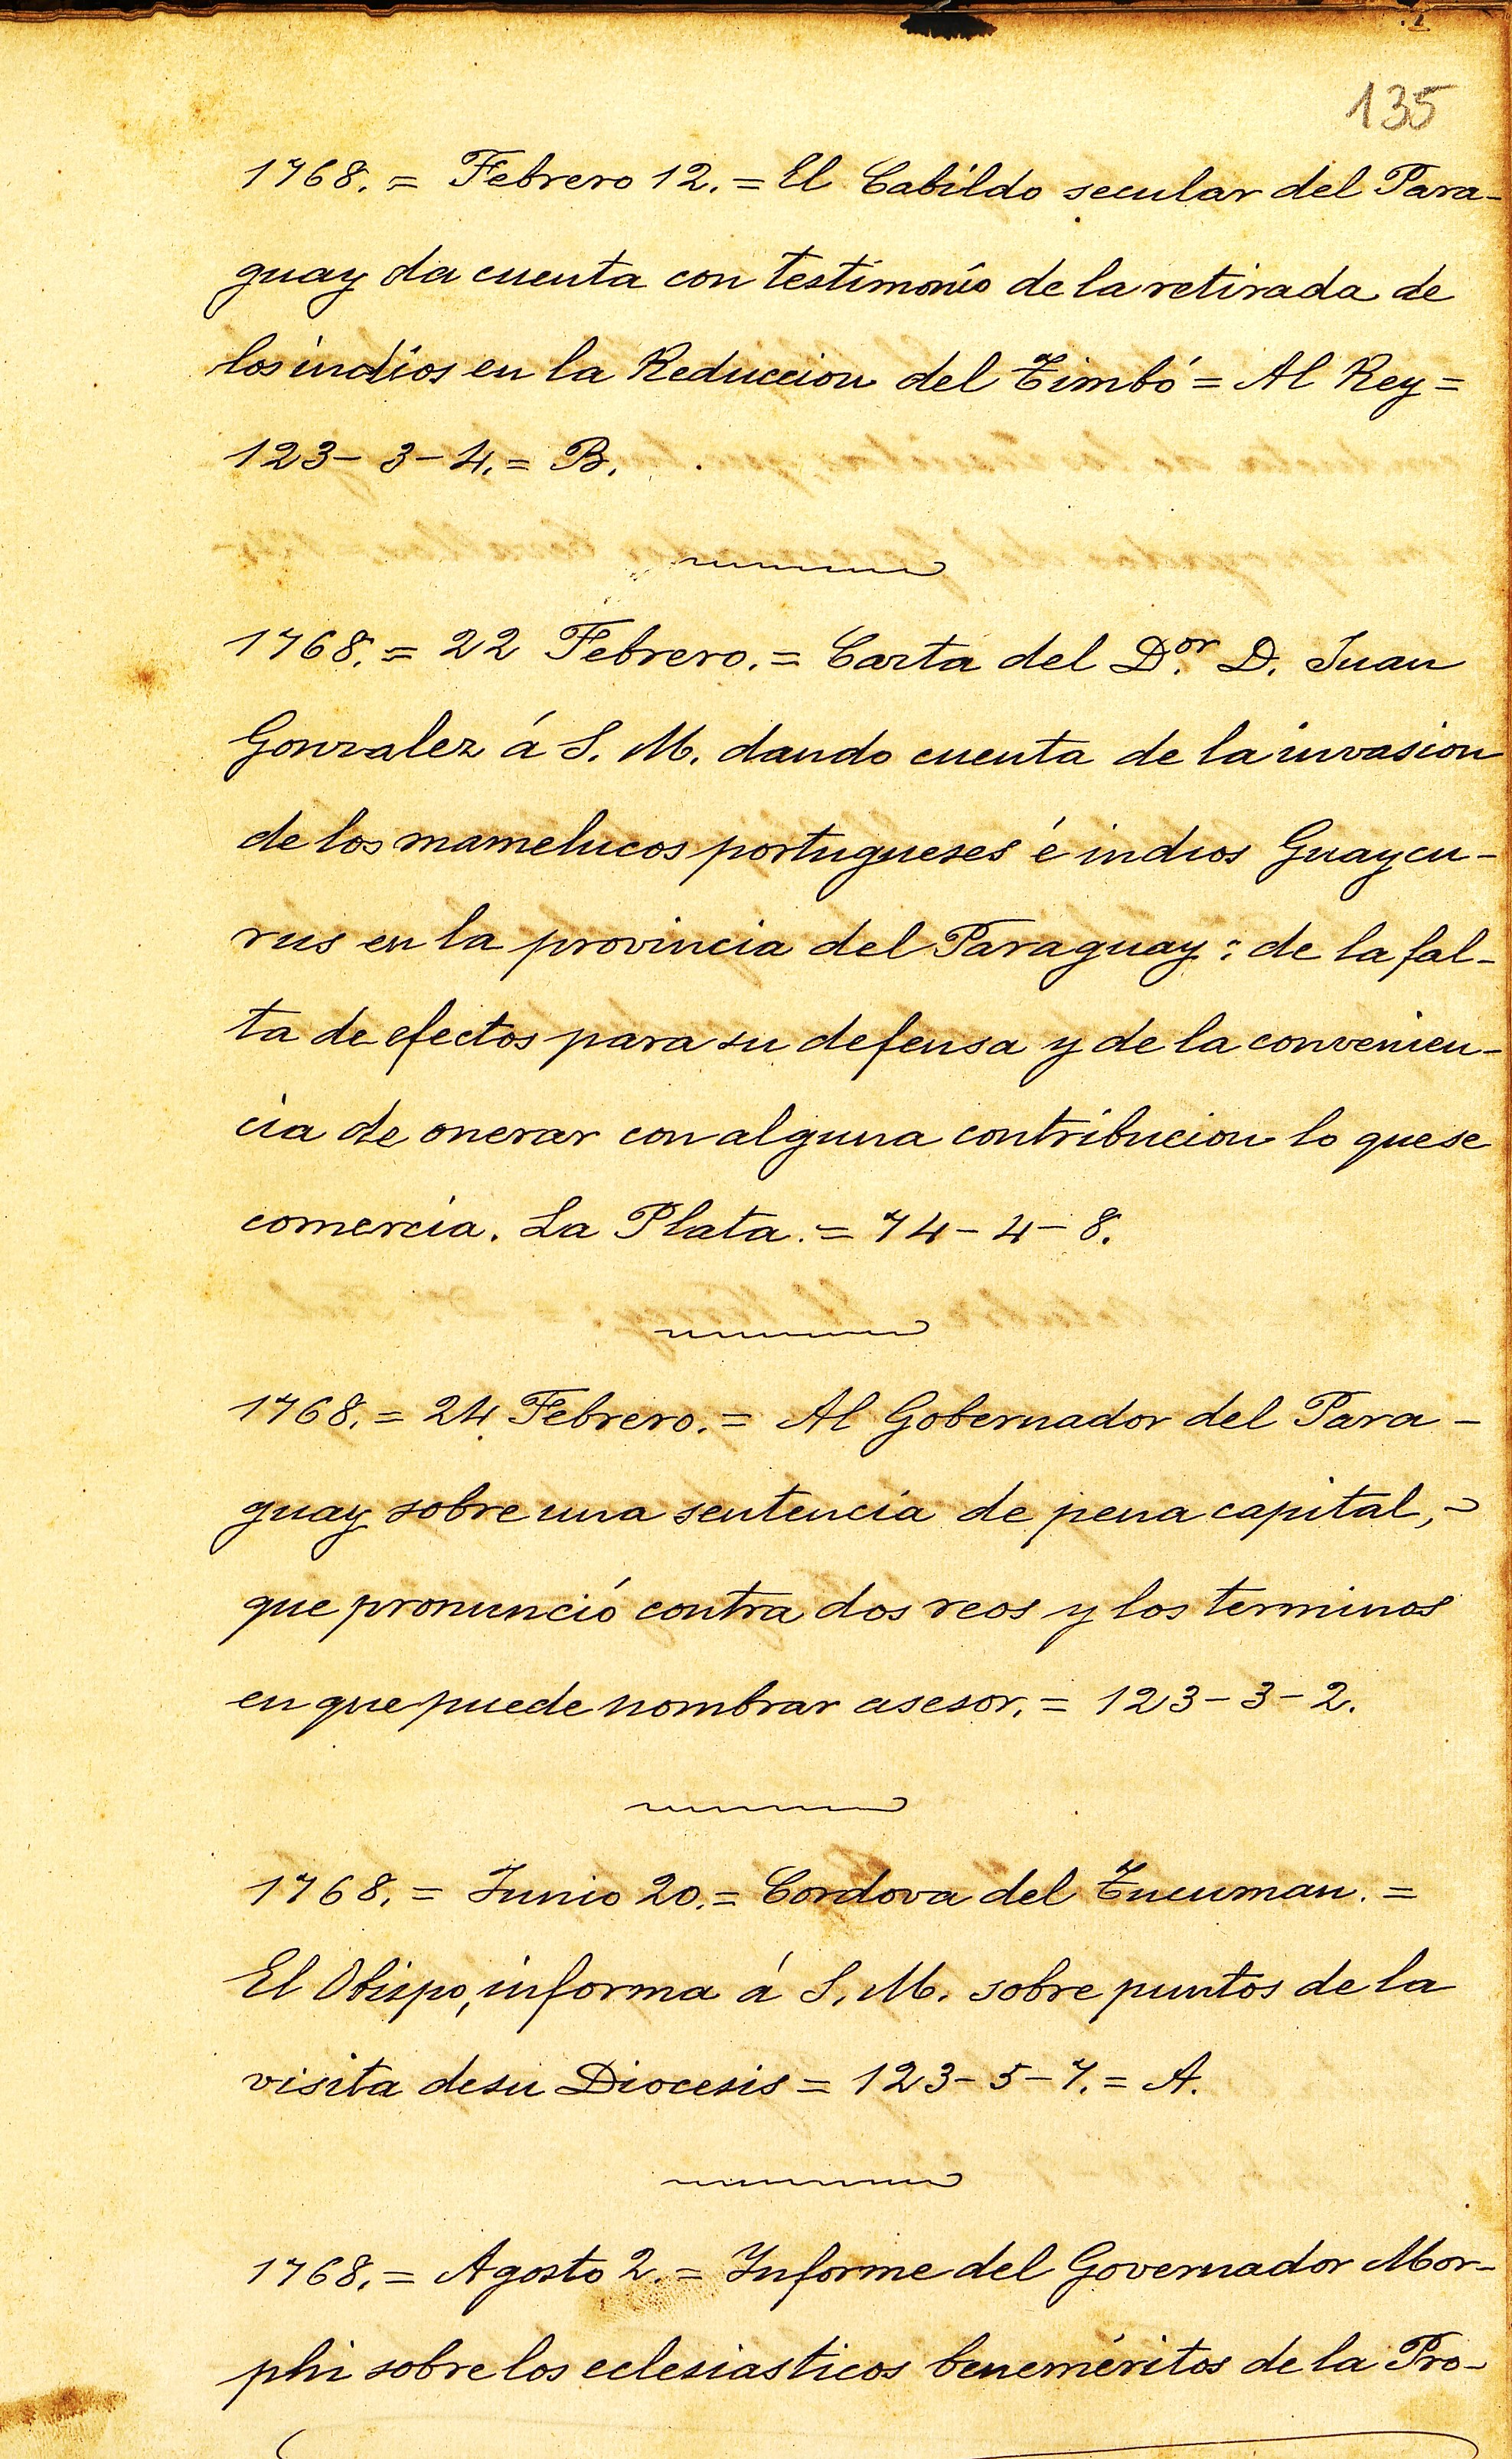 135
1768. = Febrero 12. = El Cabildo secular del Para-
guay da cuenta con testimonio de la retirada de
los indios en la Reduccion del Timbó = Al Rey =
123-3-4. = B.
1768. = 22 Febrero. = Carta del D.or D. Juan
Gonzalez á S. M. dando cuenta de la invasion
de los mamelucos portugueses é indios Guaycu-
rus en la provincia del Paraguay: de la fal-
ta de efectos para su defensa y de la convenien-
cia de onerar con alguna contribucion lo que se
comercia. La Plata. = 74-4-8.
1768. = 24 Febrero. = Al Gobernador del Para-
guay sobre una sentencia de pena capital,
que pronunció contra dos reos y los terminos
en que puede nombrar asesor. = 123-3-2.
1768. = Junio 20. = Cordova del Tucuman. =
El Obispo, informa á S. M. sobre puntos de la
visita de su Diocesis = 123-5-7. = A.
1768. = Agosto 2. = Informe del Governador Mor-
phi sobre los eclesiasticos beneméritos de la Pro-